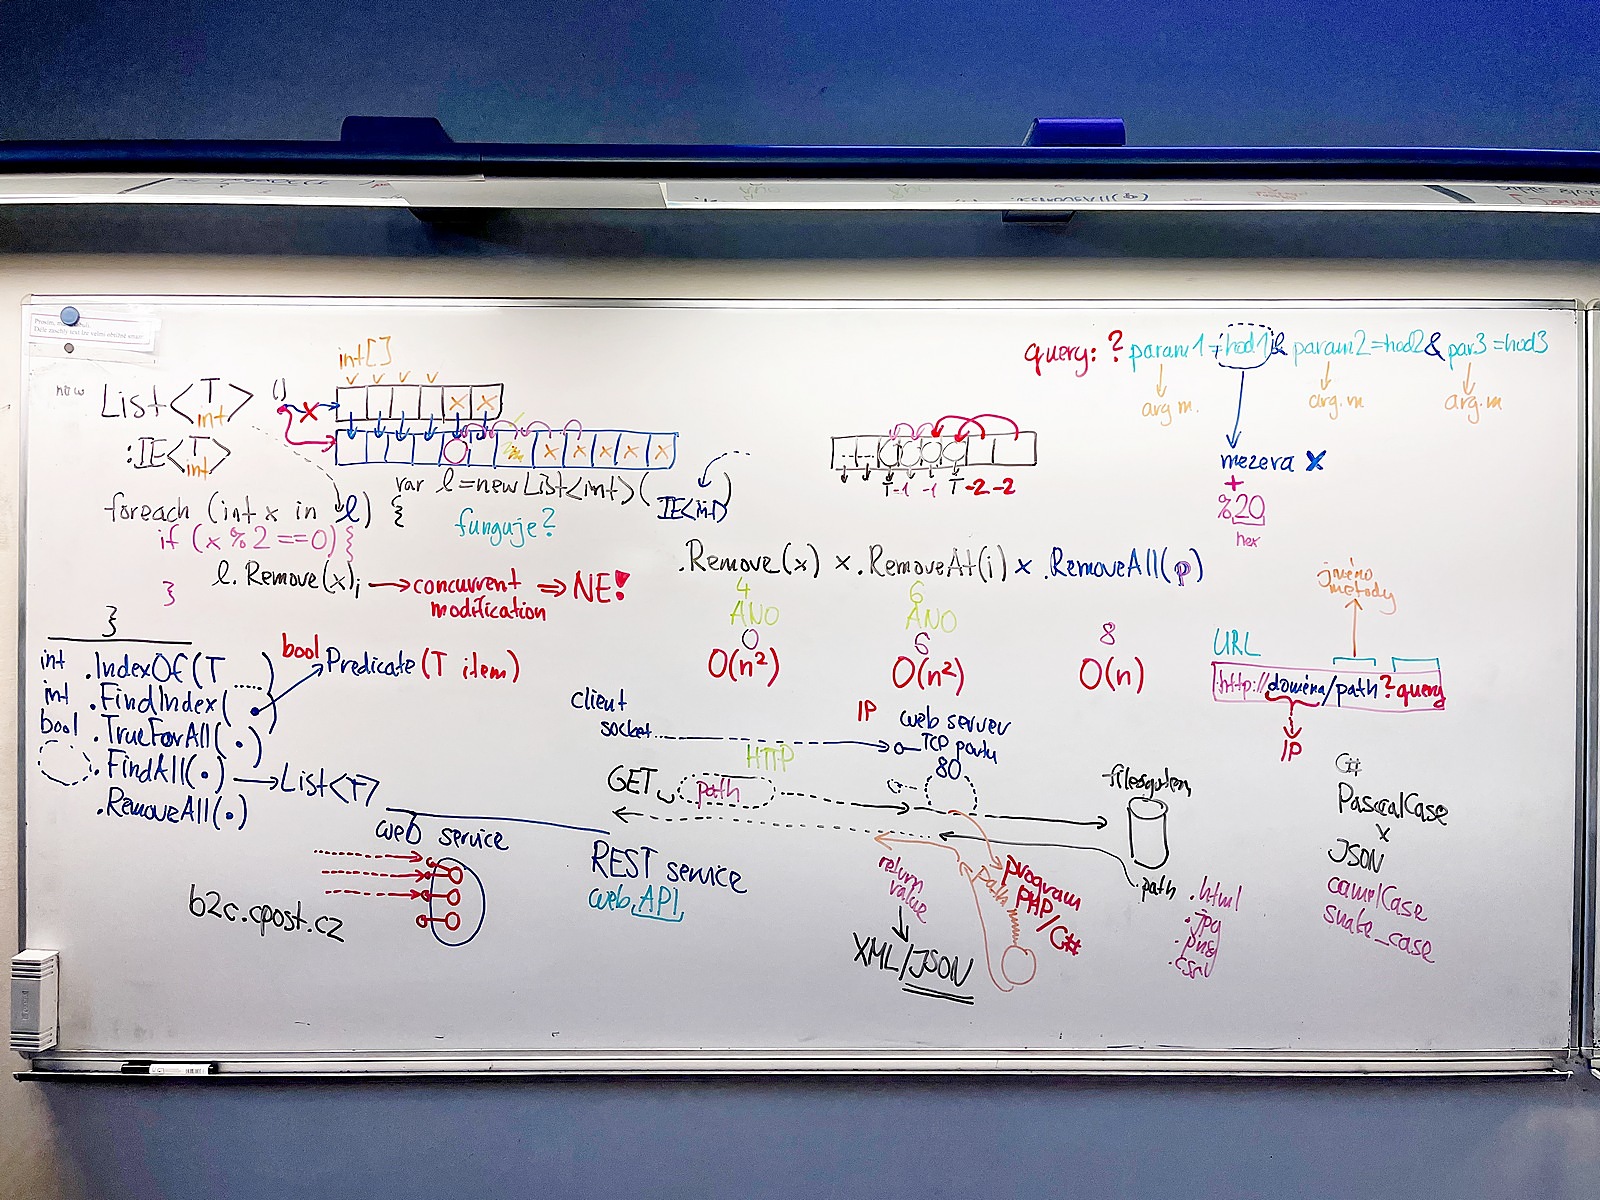 int[]
List<T>
int
:IE<T>
int
foreach (int x in l) {
if (x%2==0){
l.Remove(x);
}
}
→ concurrent modification ⇒ NE!
var l=new List<int>(
IE<int>
)
funguje?
int .IndexOf(T ....)
int .FindIndex(•)
bool .TrueForAll(•)
.FindAll(•) → List<T>
.RemoveAll(•)
bool Predicate(T item)
T -1 -1 T -2 -2
.Remove(x) × .RemoveAt(i) × .RemoveAll(p)
4 6
ANO ANO
0 6 8
O(n²) O(n²) O(n)
query: ? param1=hod1& param2=hod2& par3=hod3
arg m. arg.m arg.m
mezera X
+
%20
hex
jméno
metody
URL
http://doména/path?query
IP
client
socket
IP
web server
TCP portu
80
HTTP
GET␣ path
filesystem
path
.html
.jpg
.png
program
PHP/C#
path
return
value
XML/JSON
web service
b2c.cpost.cz
REST service
web API
C#
PascalCase
x
JSON
camelCase
snake_case